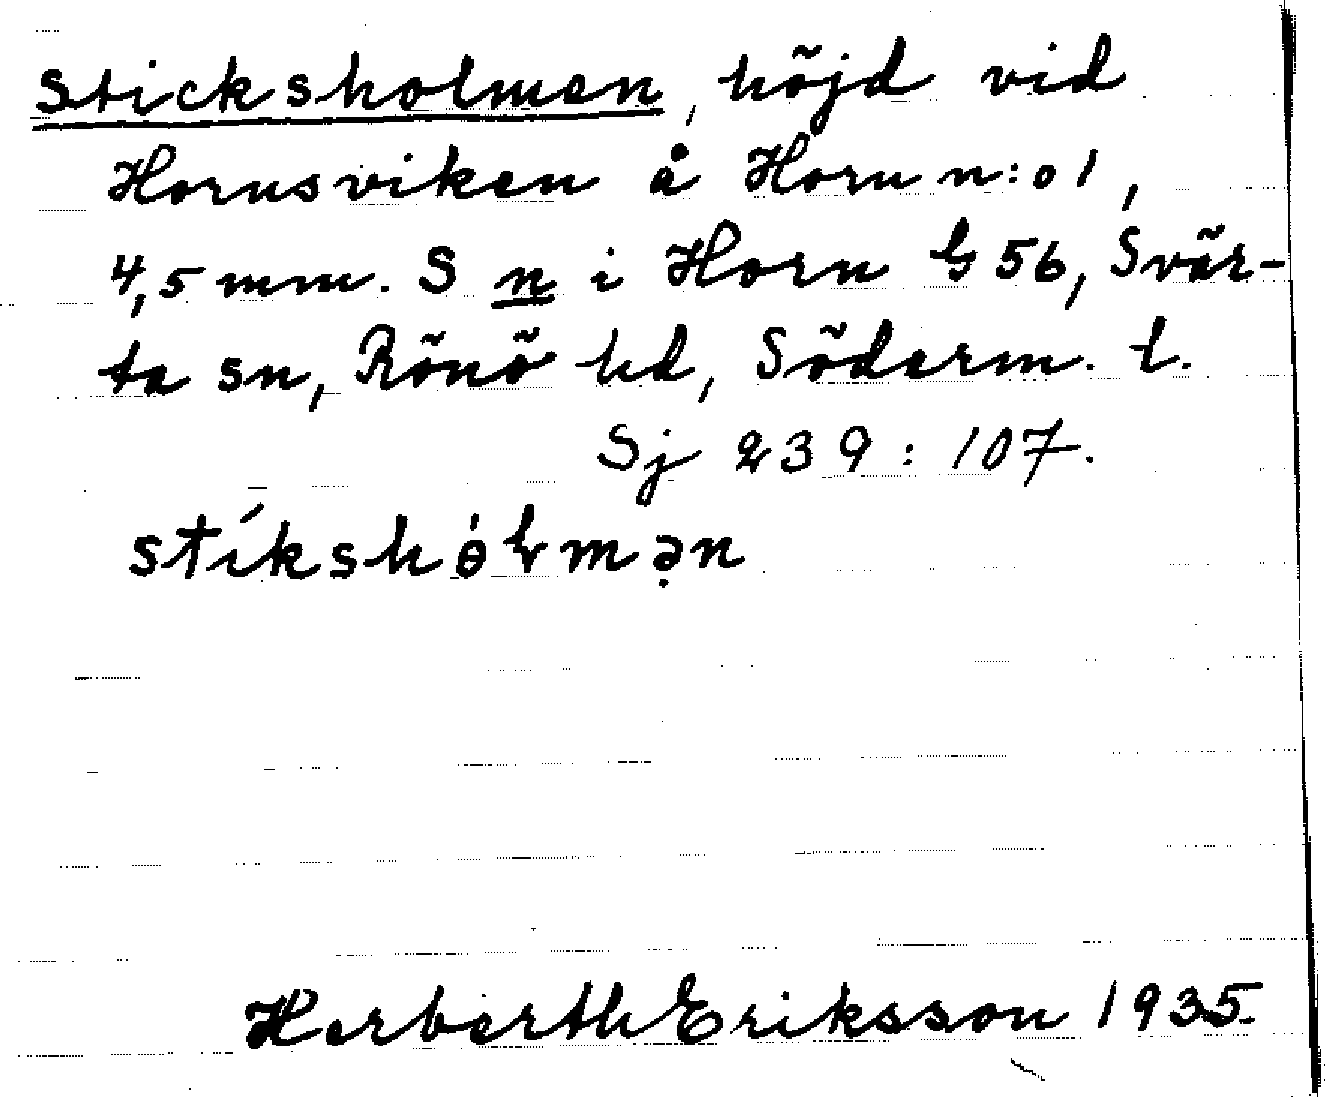 Sticksholmen, höjd vid
Hornsviken å Horn n:o 1,
4,5 mm. S n i Horn G 56, Svär-
ta sn, Rönö hd, Söderm. l.
Sj 239:107.
stíkshɵ̀ɫmə̣n
Herberth Eriksson 1935.